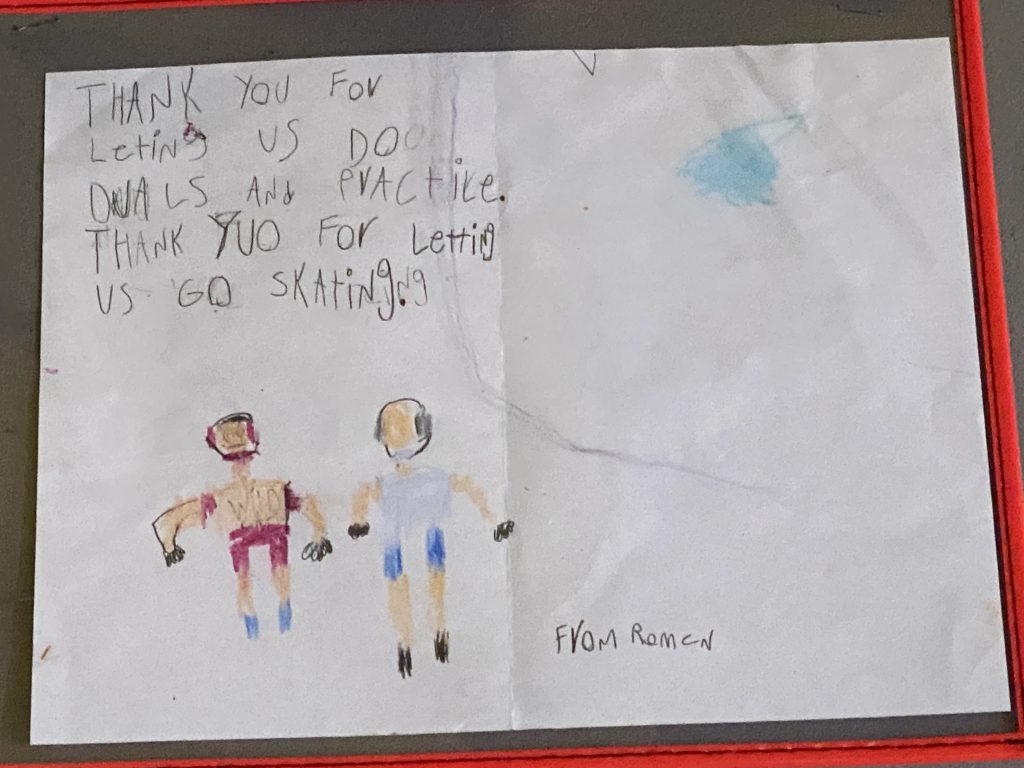 THANK YOU FOr
LetinG US DO
DUALS AND PrACtiCe.
THANK YUO FOr Letting
US GO SKAtiNg.
WiD
FrOM ROMEN